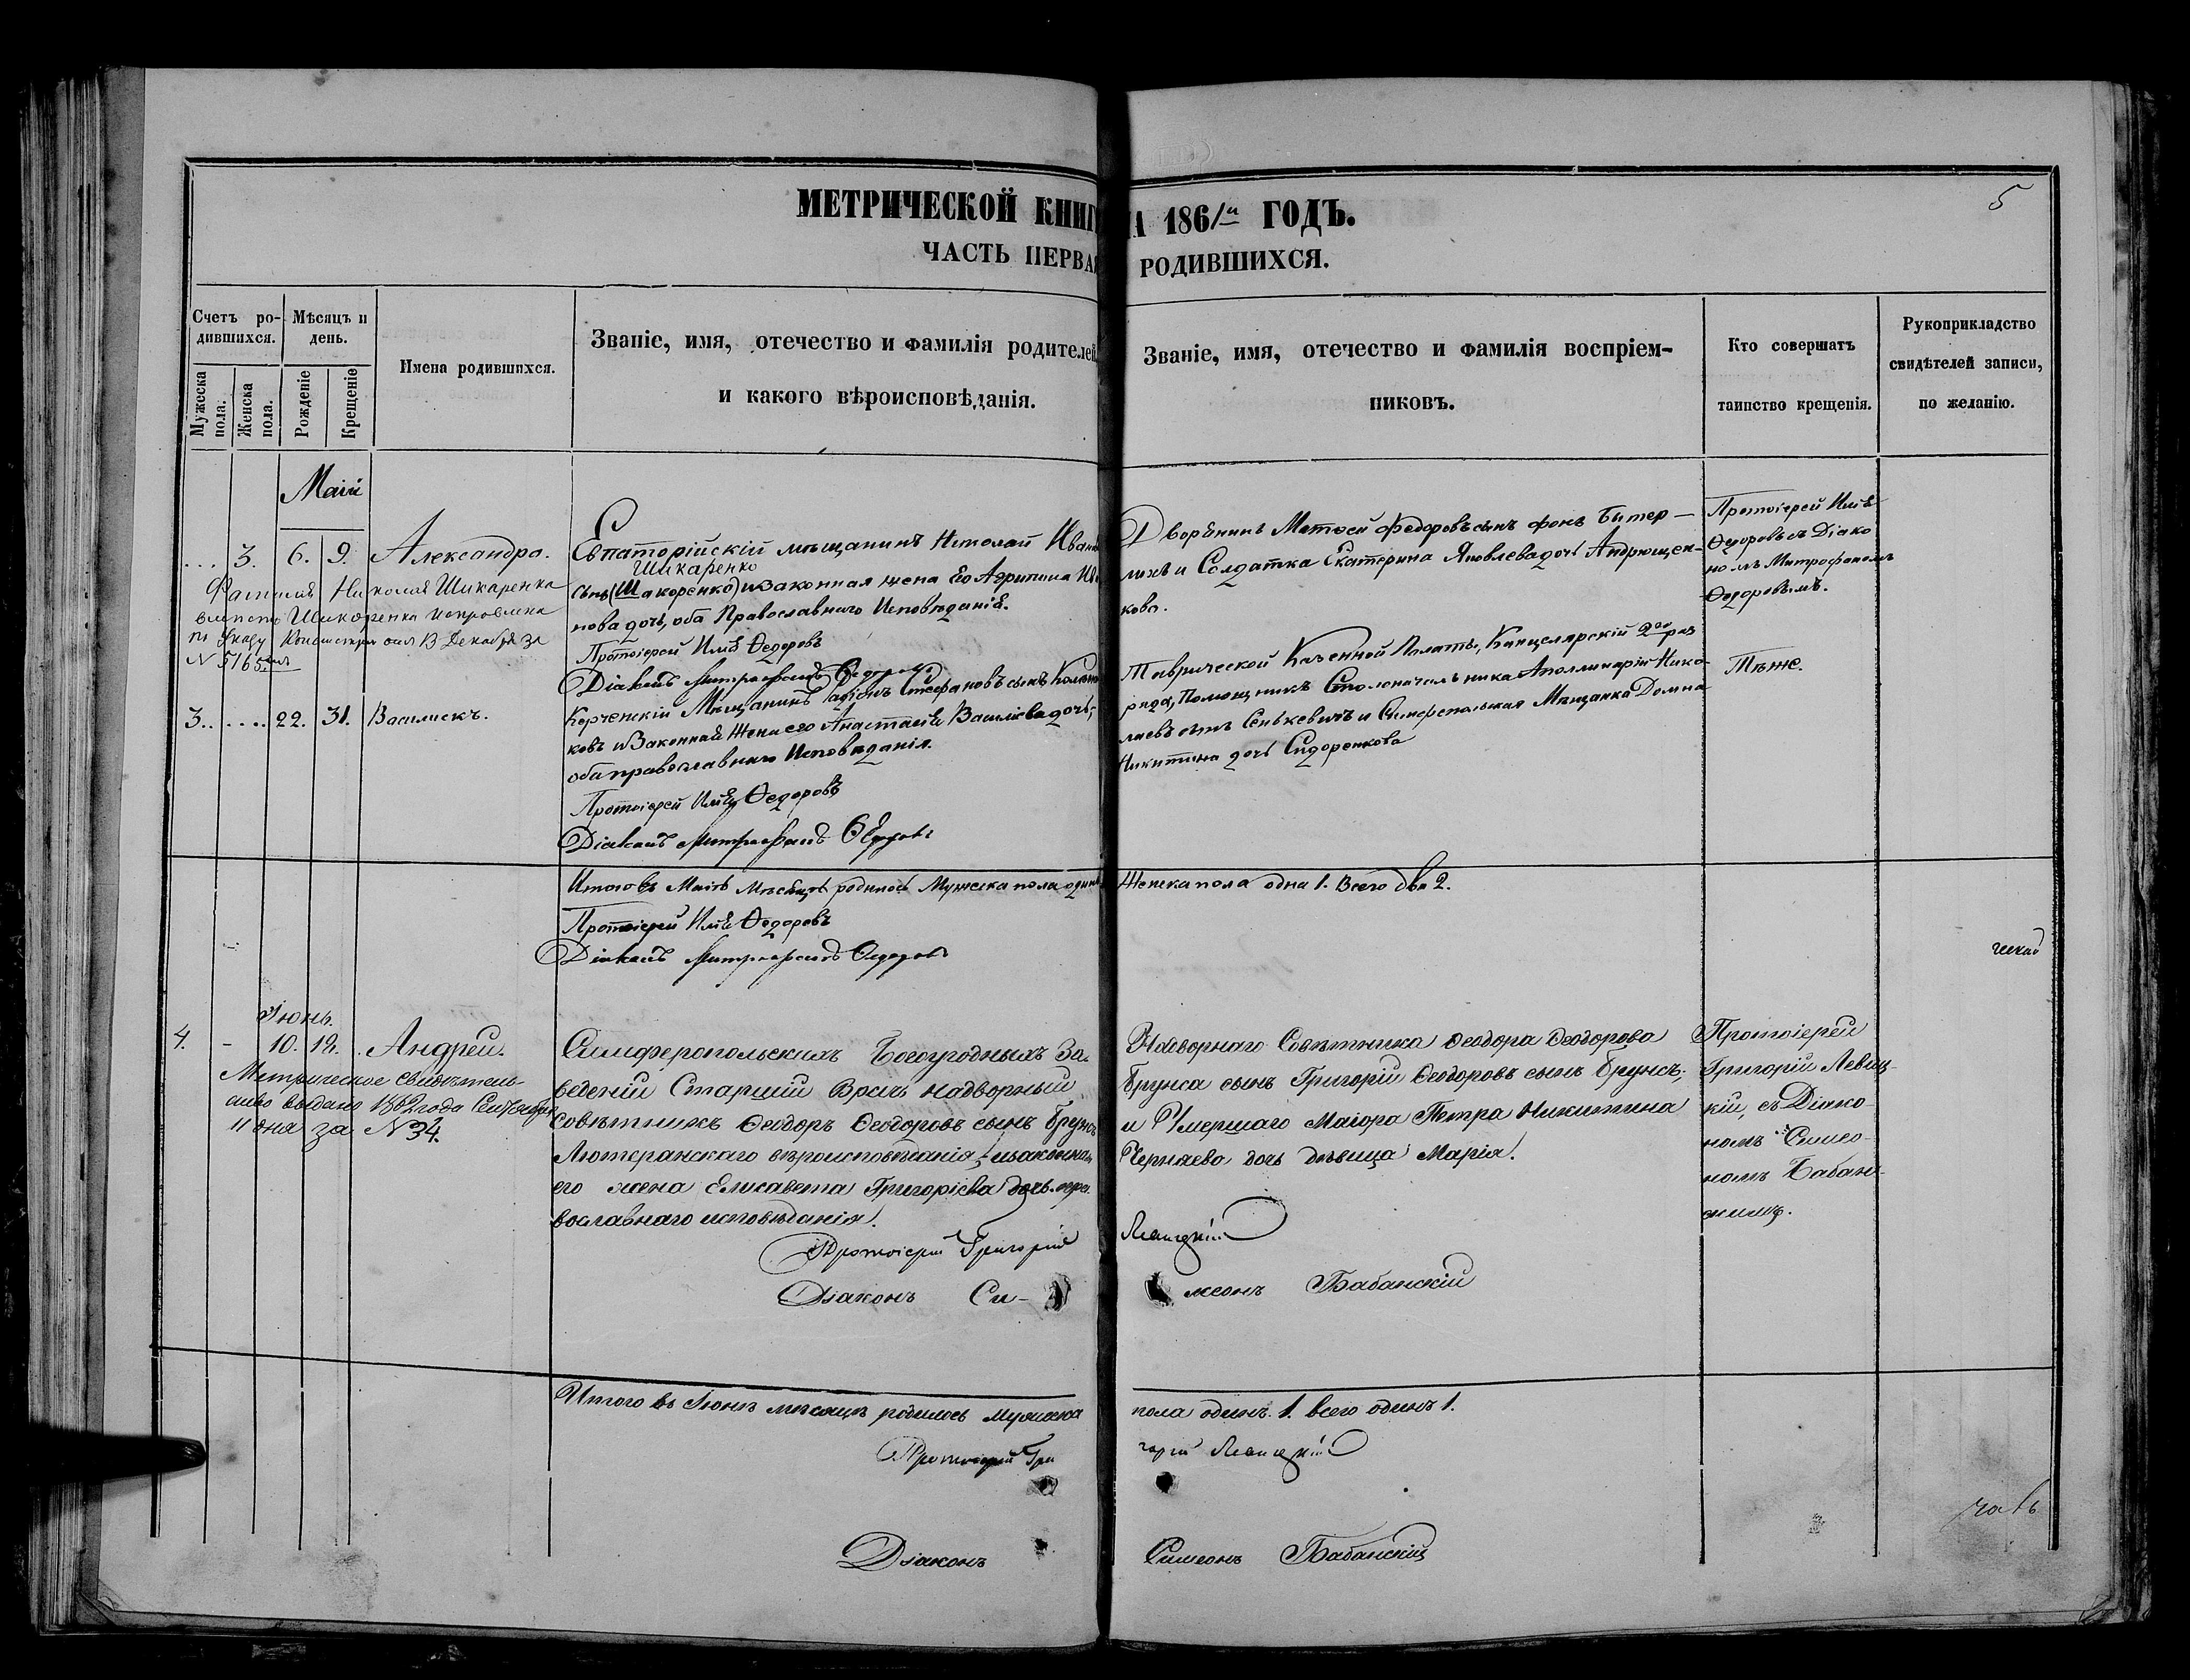 5
МЕТРИЧЕСКОЙ КНИГ А 1861/и ГОДЪ.
ЧАСТЬ ПЕРВАЯ РОДИВШИХСЯ.
Счетъ ро-
дившихся.
Мужеска
пола.
Женска
пола.
Мѣсяцъ и
день.
Рожденіе
Крещеніе
Имена родившихся.
Званіе, имя, отечество и фамилія родителей
и какого вѣроисповѣданія.
Званіе, имя, отечество и фамилія воспріем-
никовъ.
Кто совершатъ
таинство крещенія.
Рукоприкладство
свидѣтелей записи,
по желанію.
Маій
... 3. 6. 9. Александра.
Фамилія Николая Шикаренка
вмѣсто Шикоренка исправлена
по Указу Консисторіи отъ 13 Декабря за
N 5165
Евпаторійскій мѣщанинъ Николай Ивано
Шикаренко
сынъ (Шакоренко) и законная жена Его Агрипина Ив
нова дочь, оба Православнаго Исповѣданія.
Протоіерей Илія Ѳедоровъ
Діаконъ Митрофанъ Ѳедоровъ
Дворянинъ Матвей Федоровъ сынъ фонъ Битер-
лихъ и Солдатка Екатерина Яковлева дочь Андрющен-
кова.
Протоіерей Илія
Ѳедоровъ съ Діако
номъ Митрофаномъ
Ѳедоровымъ.
3.. .... 22. 31. Василискъ.
Керченскій Мѣщанинъ Стефановъ сынъ
ковъ и Законная Жена его Анастасія Василіева дочь,
оба православнаго Исповѣданія.
Протоіерей Илія Ѳедоровъ
Діаконъ Митрофанъ Ѳедоровъ
Таврической Казенной Палаты, Канцелярскій 2го раз
ряда, Помощникъ Столоначальника Аполлинарій Нико
лаевъ сынъ Сенькевичъ и Симферопольская Мѣщанка Домна
Никитина дочь Сидоренкова
Тѣже.
Итого въ Маіѣ Мѣсяцѣ родилось Мужеска пола одинъ Женска пола одна 1. Всего два 2.
Протоіерей Илія Ѳедоровъ
Діаконъ Митрофанъ Ѳедоровъ
Іюнь.
4. - 10. 12. Андрей.
Метрическое свидѣтель-
ство выдано 1862 года Сентября
11 дня за N 34.
Симферопольскихъ Богоугодныхъ За-
веденій Старшій Врачъ надворный
совѣтникъ Ѳеодоръ Ѳеодоровъ сынъ Брунсъ
Лютеранскаго вѣроисповѣданія, и законная
его жена Елисавета Григоріева дочь пра-
вославнаго исповѣданія.
Надворнаго Совѣтника Ѳеодора Ѳеодорова
Брунса сынъ Григорій Ѳеодоровъ сынъ Брунсъ;
и Умершаго Маіора Петра Никитина
Черняева дочь дѣвица Марія.
Протоіерей
Григорій Левиц-
кій, съ Діако-
номъ Симео-
номъ Бабан-
скимъ.
Протоіерей Григорій Левицкій
Діаконъ Си- меонъ Бабанскій
Итого въ Іюнѣ мѣсяцѣ родилось Мужеска пола одинъ 1. всего одинъ 1.
Протоіерей Гри горій Левицкій
Діаконъ Симеонъ Бабанскій